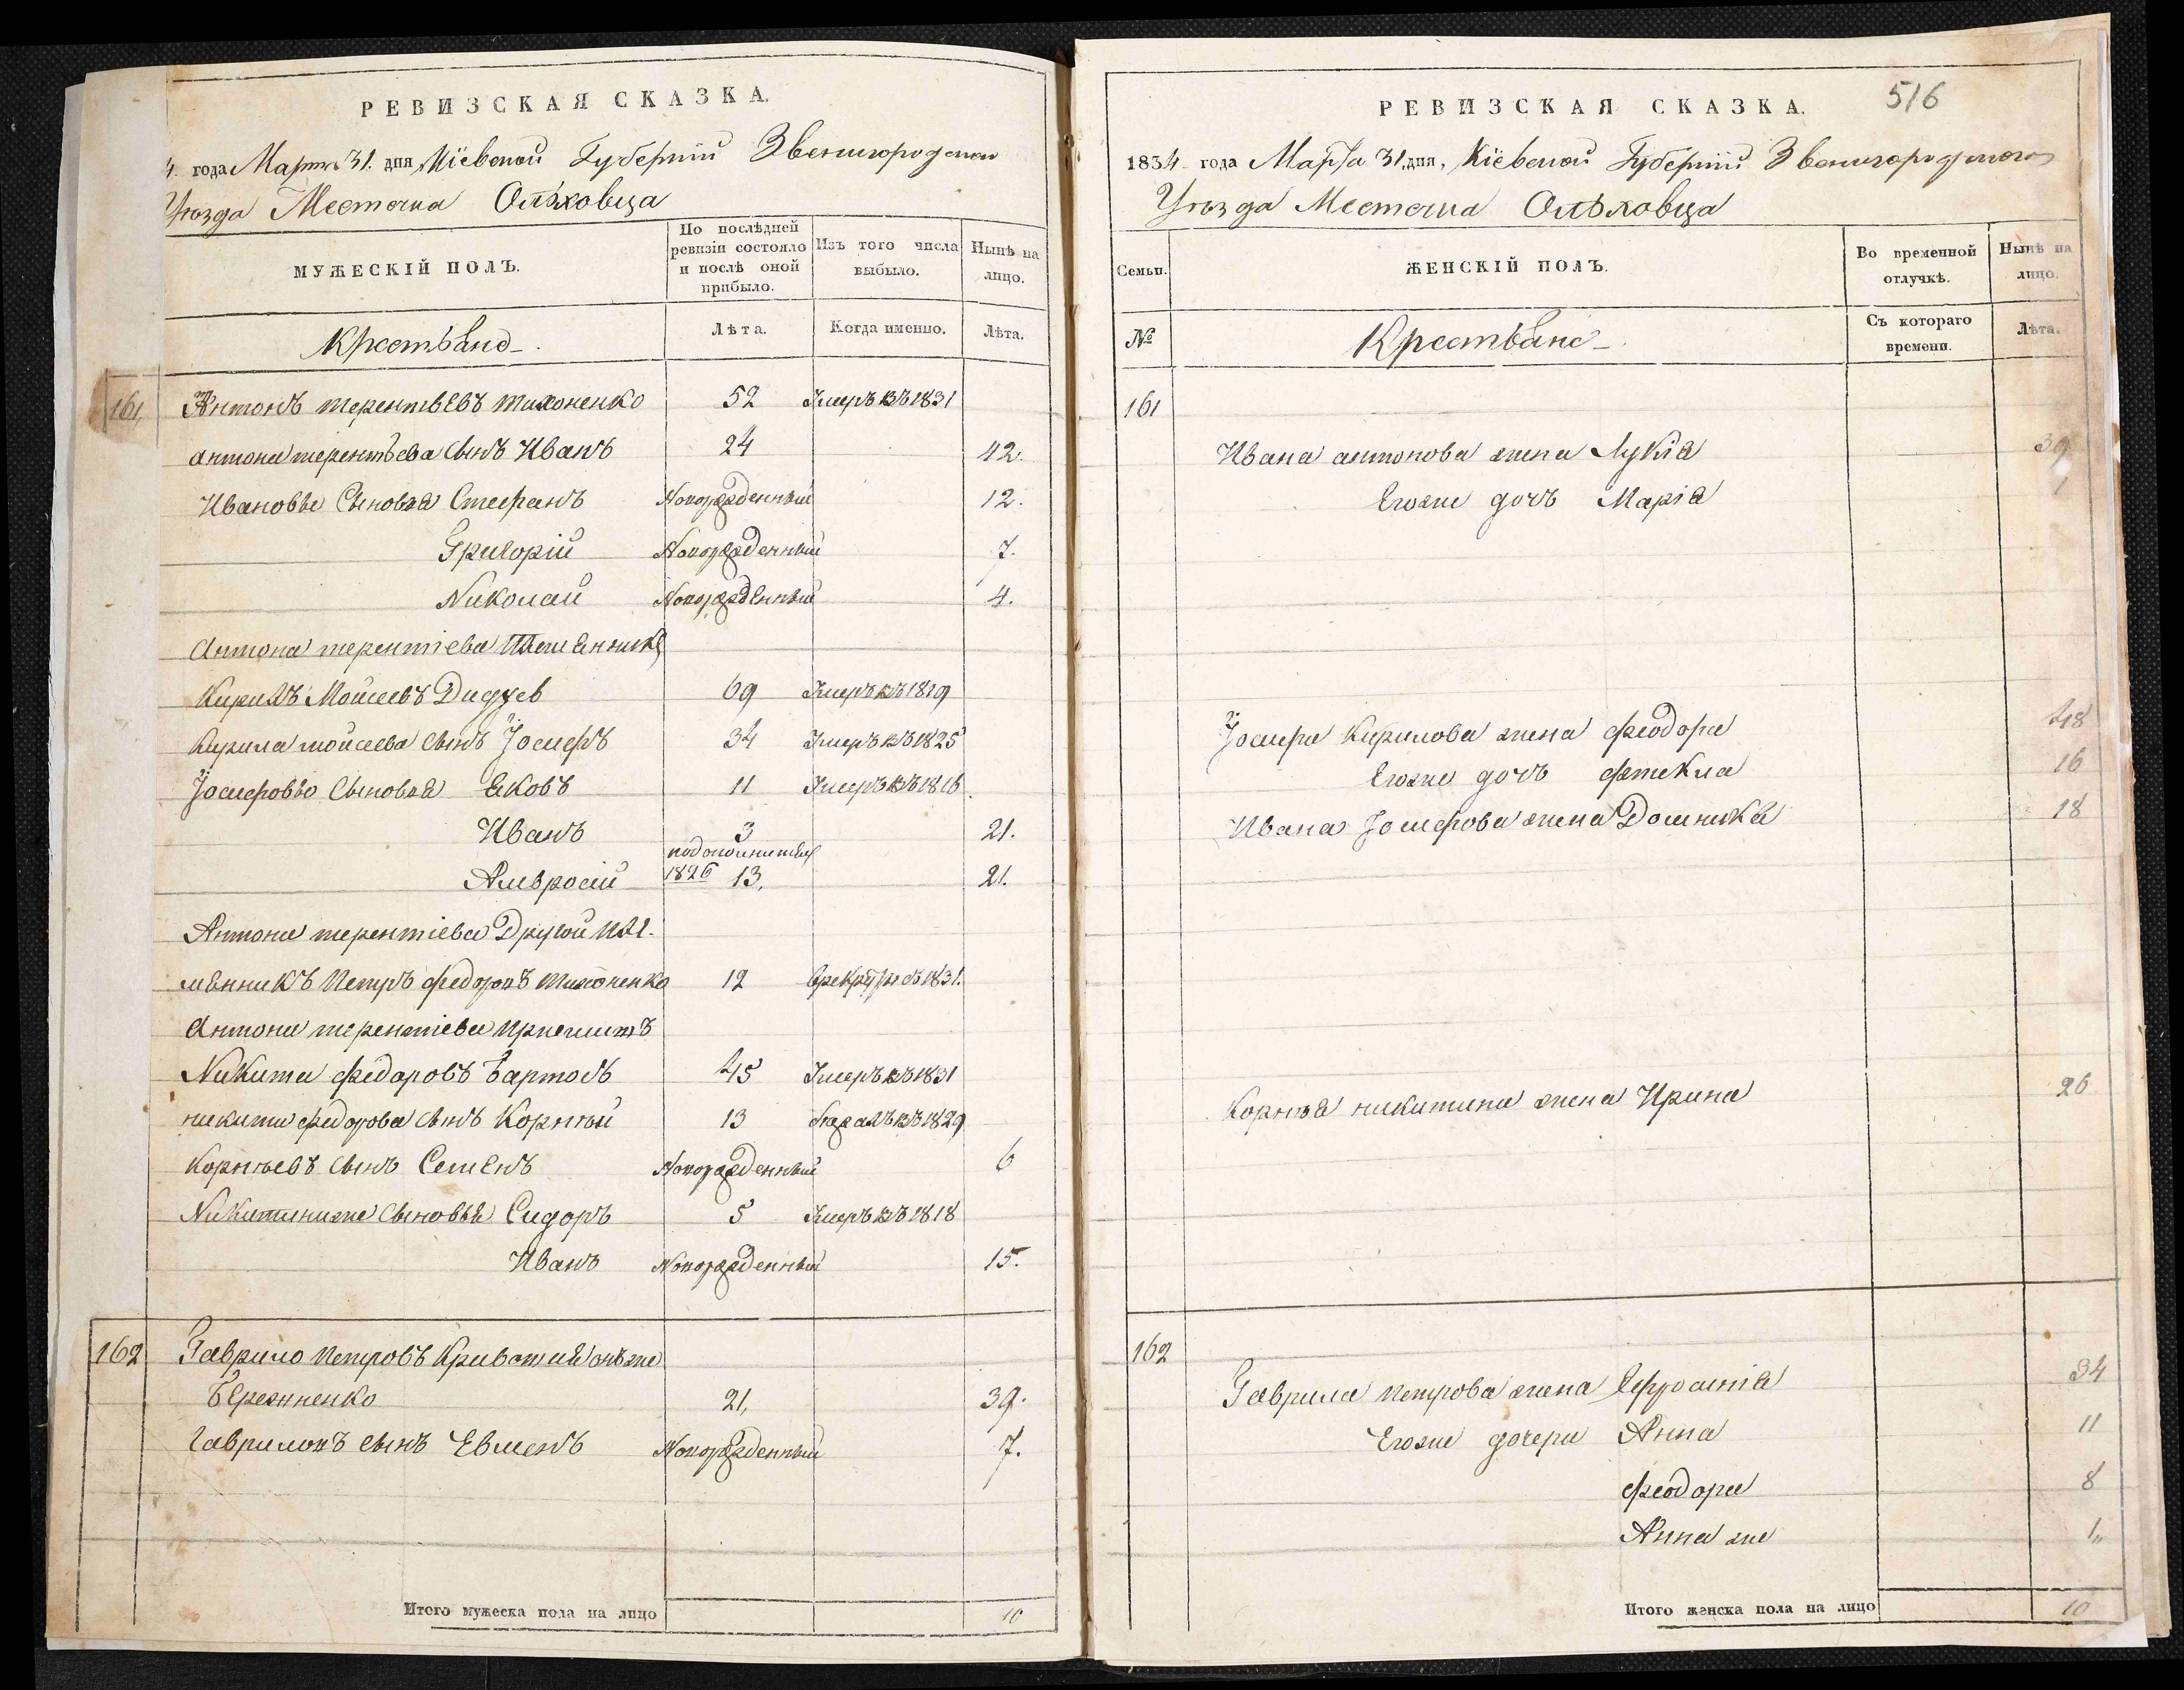 РЕВИЗСКАЯ СКАЗКА.
4. года Марта 31. дня Кіевской Губерніи Звенигородскаго
Уѣзда Местечка Ольховца
МУЖЕСКІЙ ПОЛЪ.
По послѣдней ревизіи состояло и послѣ оной прибыло.
Изъ того числа выбыло.
Нынѣ на лицо.
Крестьяне
Лѣта.
Когда именно.
Лѣта.
161, Антонъ терентьевъ тихоненко 52 Умеръ въ 1831
антона терентьева сынъ Иванъ 24 42.
Ивановы Сыновья Стефанъ Новорожденный 12.
Григорій Новорожденный 7.
Николай Новорожденный 4.
Антона терентіева племенники
Кирилъ Мойсеевъ 69 Умеръ въ 1829
Кирила мойсеева сынъ Іосифъ 34 Умеръ въ 1825
Іосифовы Сыновья Яковъ 11 Умеръ въ 1816
Иванъ 3 21.
Амвросій 1826 13. 21.
Антона терентіева Другой пле-
менникъ Петръ федоровъ тихоненко 12 1831.
Антона терентіева
Никита федоровъ 45 Умеръ въ 1831
никиты федорова сынъ Корній 13 бѣжалъ въ 1829
Корнѣевъ сынъ Семенъ Новорожденный 6
Никитины же Сыновья Сидоръ 5 Умеръ въ 1818
Иванъ Новорожденный 15.
162 Гаврило Петровъ онъ же
Бережненко 21, 39.
Гавриловъ сынъ Евменъ Новорожденный 7.
Итого мужеска пола на лицо 10
516
РЕВИЗСКАЯ СКАЗКА.
1834 года Марта 31. дня, Кіевской Губерніи Звенигородскаго
Уѣзда Местечка Ольховца
Семьи.
ЖЕНСКІЙ ПОЛЪ.
Во временной отлучкѣ.
Нынѣ на лицо.
№
Крестьяне
Съ котораго времени.
Лѣта.
161
Ивана антонова жена Лукія 39
Его же дочь Марія 1
Іосифа Кирилова жена феодора 48
Его же дочь фтекла 16
Ивана Іосифова жена Домникія 18
Корнѣя никитина жена Ирина 26
162
Гаврила петрова жена Ефросинія 34
Его же дочери Анна 11
феодора 8
Анна же 1,,
Итого женска пола на лицо 10